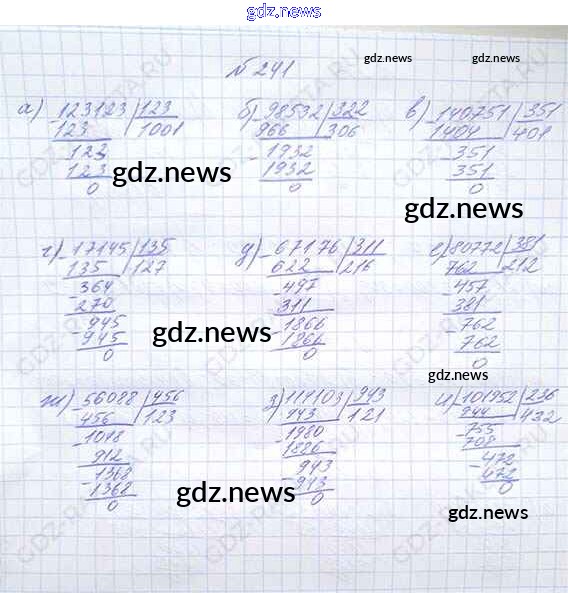 gdz.news
№ 241
gdz.news
gdz.news
а) 123123 | 123
123 | 1001
123
123
0
б) 98532 | 322
966 | 306
1932
1932
0
в) 140751 | 351
1404 | 401
351
351
0
gdz.news
gdz.news
г) 17145 | 135
135 | 127
364
270
945
945
0
д) 67176 | 311
622 | 216
497
311
1866
1866
0
е) 80772 | 381
762 | 212
457
381
762
762
0
gdz.news
gdz.news
ж) 56088 | 456
456 | 123
1048
912
1368
1368
0
з) 114103 | 943
943 | 121
1980
1886
943
943
0
и) 101952 | 236
944 | 432
755
708
472
472
0
gdz.news
gdz.news
gdz.news